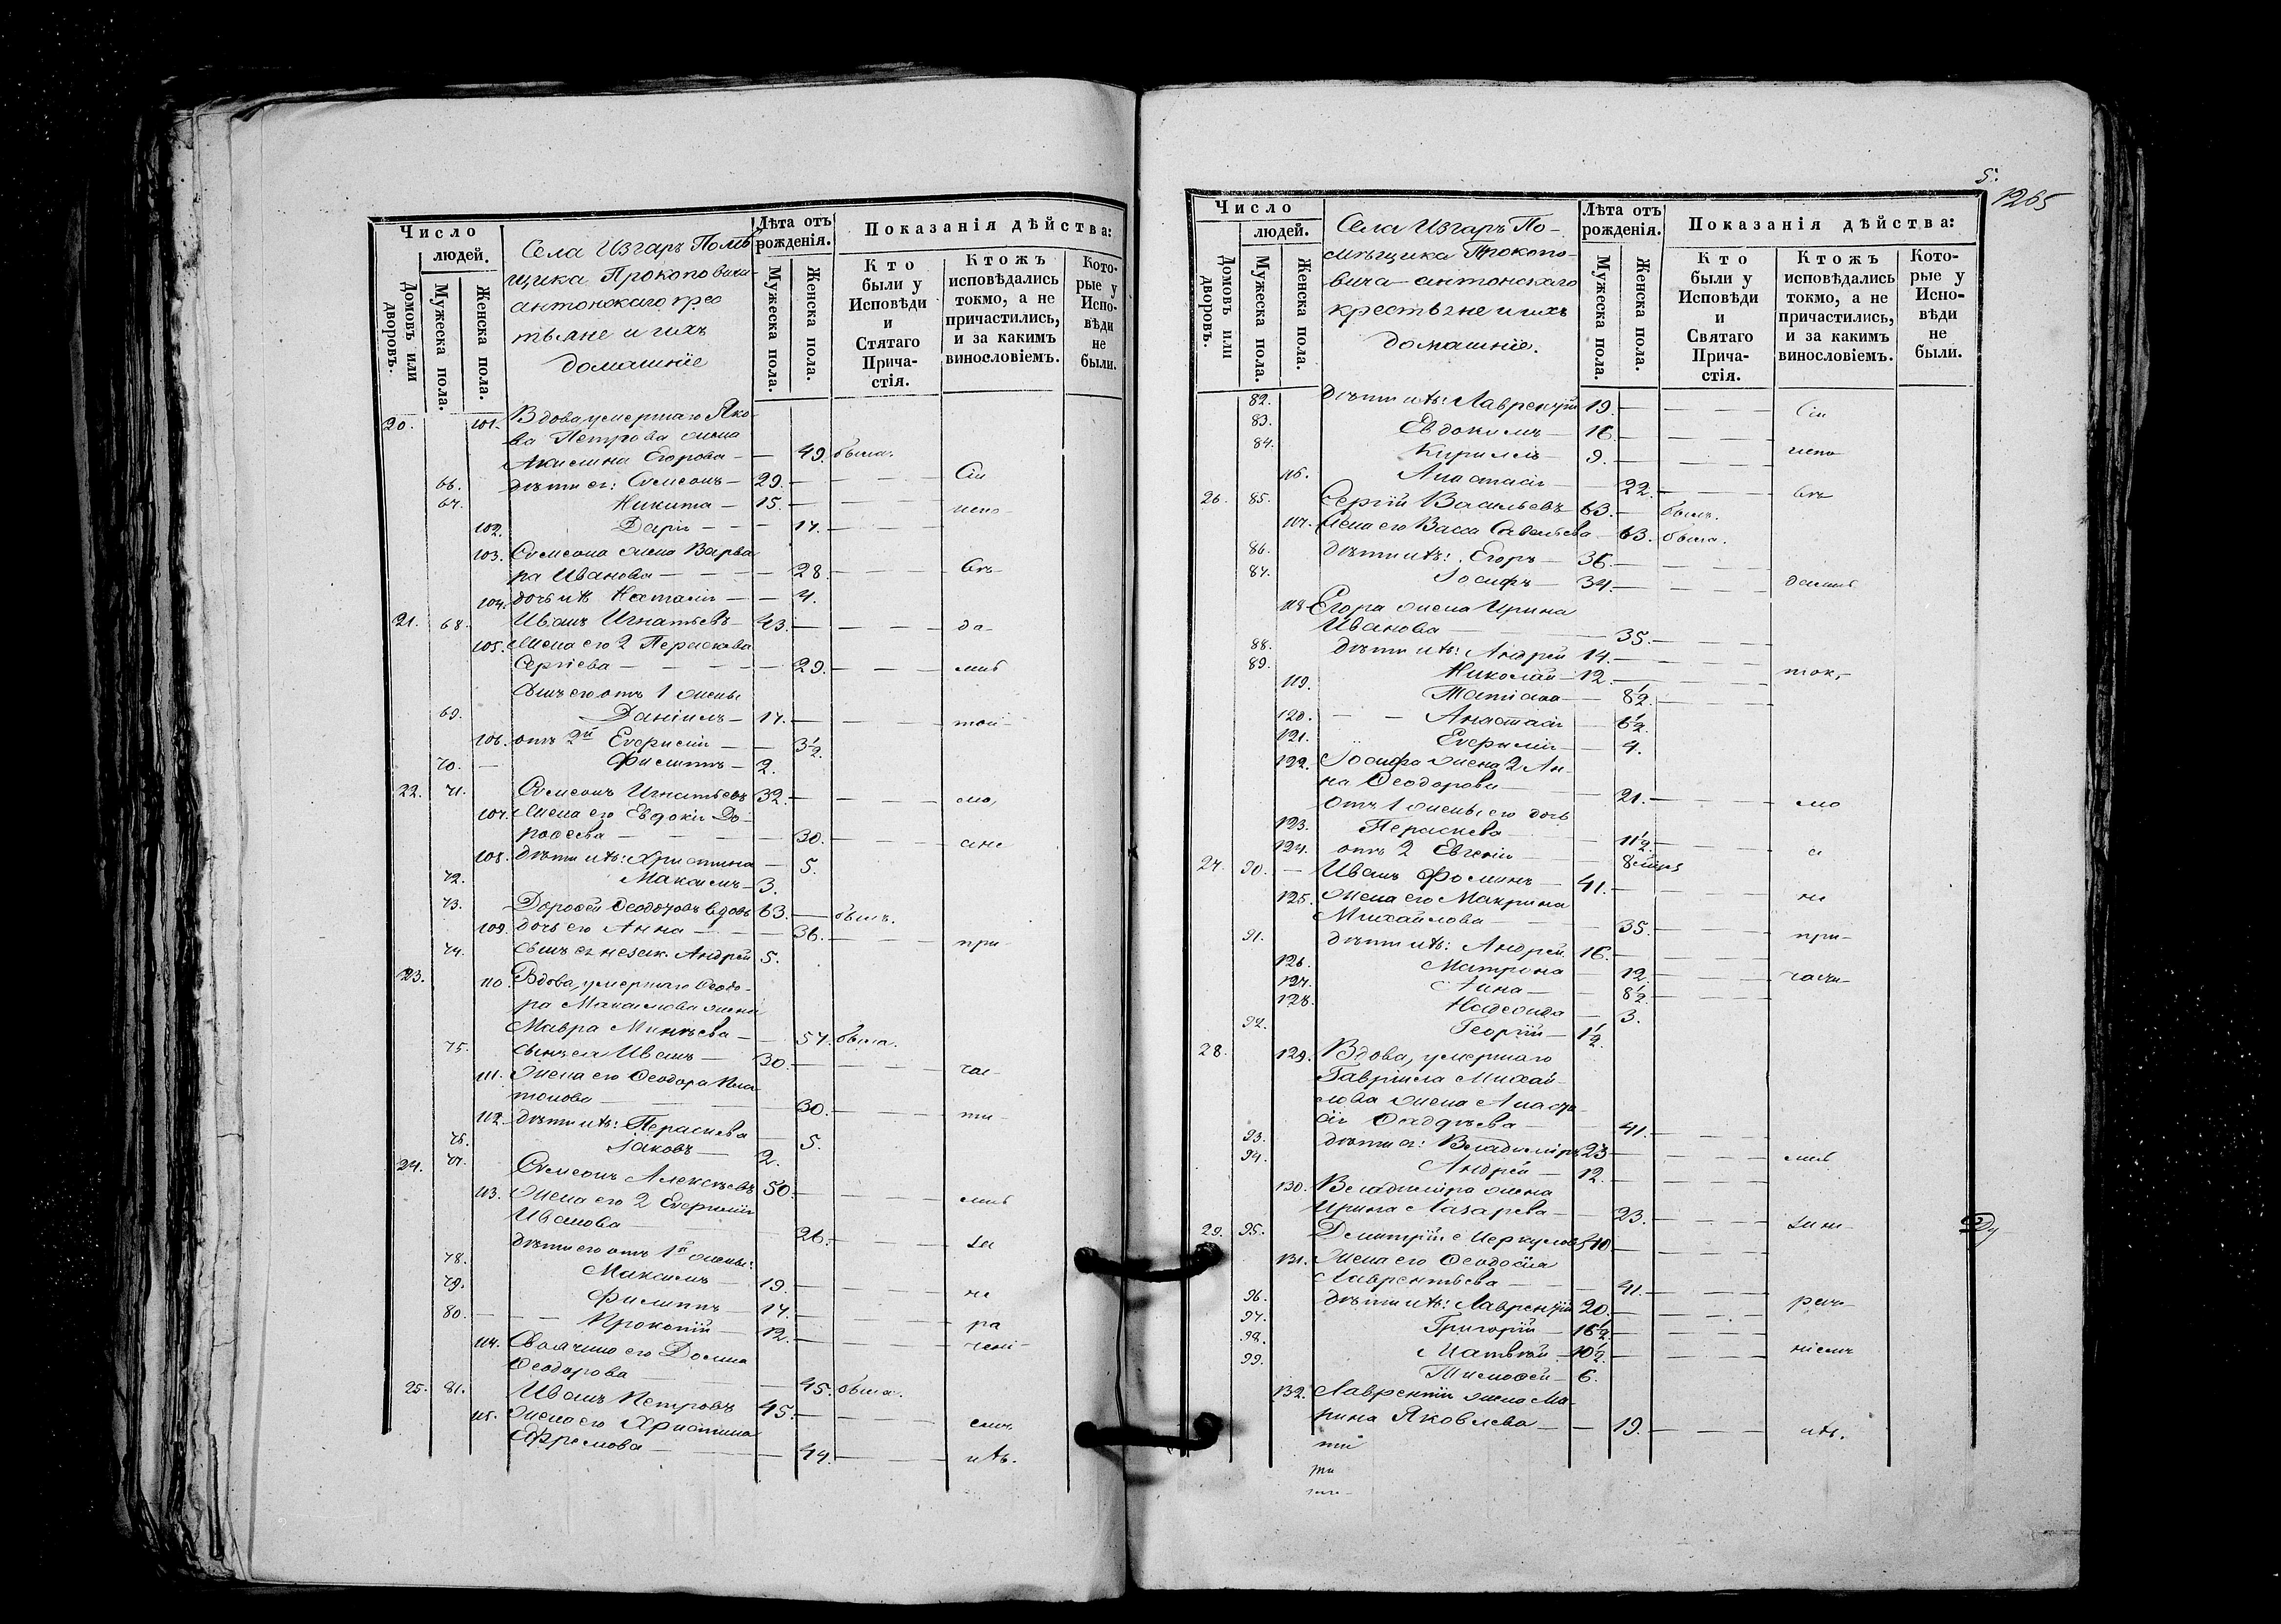 Число
людей.
Домовъ или дворовъ.
Мужеска пола.
Женска пола.
Села Изгаръ Помѣ
щика Прокопович
антонскаго крес
тьяне и ихъ
домашніе
Лѣта отъ
рожденія.
Мужеска пола.
Женска пола.
Показанія дѣйства:
Кто
были у
Исповѣди
и
Стятаго
Прича-
стія.
Ктожъ
исповѣдались
токмо, а не
причастились,
и за какимъ
винословіемъ.
Кото-
рые у
Испо-
вѣди
не
были.
20. 101. Вдова умершаго Яко-
ва Петрова жена
Акилина Егорова — — 49. была.
66. дѣти ея: Симеонъ — 29. — — — Сіи
67. Никита — 15. — — — испо-
102. Дарія — — — 17. — — —
103. Симеона жена Варва
ра Иванова — — — 28. — — — вѣ-
104. дочь ихъ Наталія — — 4.
21. 68. Иванъ Игнатьевъ — 43. — — — да-
105. Жена его 2 Параскева
Сергіева — — — — 29. — — — лись
Сынъ его отъ 1 жены
69. Даніилъ — 17. — — — той-
106. отъ 2й Евфимія — — 3½.
70. — Филиппъ — 2.
22. 71. Симеонъ Игнатьевъ 32. — — — мо,
107. Жена его Евдокія До-
рофеева — — — — 30. — — — а не
108. дѣти ихъ: Христина — 5.
72. Максимъ — 3.
73. Дорофей Ѳеодоровъ вдовъ 63. — былъ.
109. дочь его Анна — — — 36. — — — при-
74. Сынъ ея незак. Андрей 5.
23. 110. Вдова, умершаго Ѳеодо-
ра Максимова жена
Мавра Минѣева — — 57. была.
75. сынъ ея Иванъ — 30. — — — час-
111. Жена его Ѳеодора Пла
тонова — — — 30. — — — ти-
112. дѣти ихъ: Параскева — 5.
76. Іаковъ — 2.
24. 77. Симеонъ Алексѣевъ 50. — — — лись
113. Жена его 2 Евфимія
Иванова — — 26. — — — за
дѣти его отъ 1й жены:
78. Максимъ — 19. — — — не
79. Филиппъ — 17. — — — ра
80. — — Прокопій — 12. — — — чені-
114. Свояченица его Домна
Ѳеодорова — — 45. была.
25. 81. Иванъ Петровъ 45. — — —
115. Жена его Христина
Ефремова — — 44. — — — ихъ.
5.
1265
Число
людей.
Домовъ или дворовъ.
Мужеска пола.
Женска пола.
Села Изгаръ По-
мѣщика Прокопо-
вича — антонскаго
крестьяне и ихъ
домашніе.
Лѣта отъ
рожденія.
Мужеска пола.
Женска пола.
Показанія дѣйства:
Кто
были у
Исповѣди
и
Святаго
Прича-
стія.
Ктожъ
исповѣдались
токмо, а не
причастились,
и за какимъ
винословіемъ.
Кото-
рые у
Испо-
вѣди
не
были.
82. дѣти ихъ: Лаврентій 19. — — — Сіи
83. Евдокимъ — 16. — — —
84. Кириллъ — 9. — — — испо
116. Анастасія — 22. — — — вѣ
26. 85. Сергій Васильевъ 63. — былъ.
117. Жена его Васса Савельева — 63. была.
86. дѣти ихъ: Егоръ — 36. — — —
87. Іосифъ — 34. — — — дались
118. Егора жена Ирина
Иванова — — — 35. — — —
88. дѣти ихъ: Андрей 14. — — —
89. Николай — 12. — — — ток-
119. Татіана — 8½. — — —
120. — — Анастасія — 6½.
121. Евфимія — 4.
122. Іосифа жена 2 Ан-
на Ѳеодорова — — 21. — — — мо
Отъ 1 жены его дочь
123. Параскева — — 11½. — — — а
124. отъ 2 Евгенія — 8 мцов
27. 90. — Иванъ Фоминъ — 41. — — — не
125. Жена его Макрина
Михайлова — — 35. — — — при-
91. дѣти ихъ: Андрей 16. — — —
126. Матрона — 12. — — — части-
127. Анна — — 8½. — — —
128. Надежда — 3.
92. Георгій — 1½.
28. 129. Вдова, умершаго
Гавріила Михай-
лова жена Анаста-
сія Ѳаддѣева — — 41. — — —
93. дѣти ея: Владиміръ 23 — — — лись
94. Андрей — 12. — — —
130. Владиміра жена
Ирина Лазарева — — 23. — — —
29. 95. Димитрій Меркуловъ 40. — — —
131. Жена его Ѳеодосія
Лаврентьева — — 41. — — —
96. дѣти ихъ: Лаврентій 20. — — — раче-
97. Григорій — 16½. — — —
98. Матвѣй — 10½. — — — ніемъ
99. Тимофей — 6.
132. Лаврентія жена Ма-
рина Яковлева — — 19. — — — ихъ.